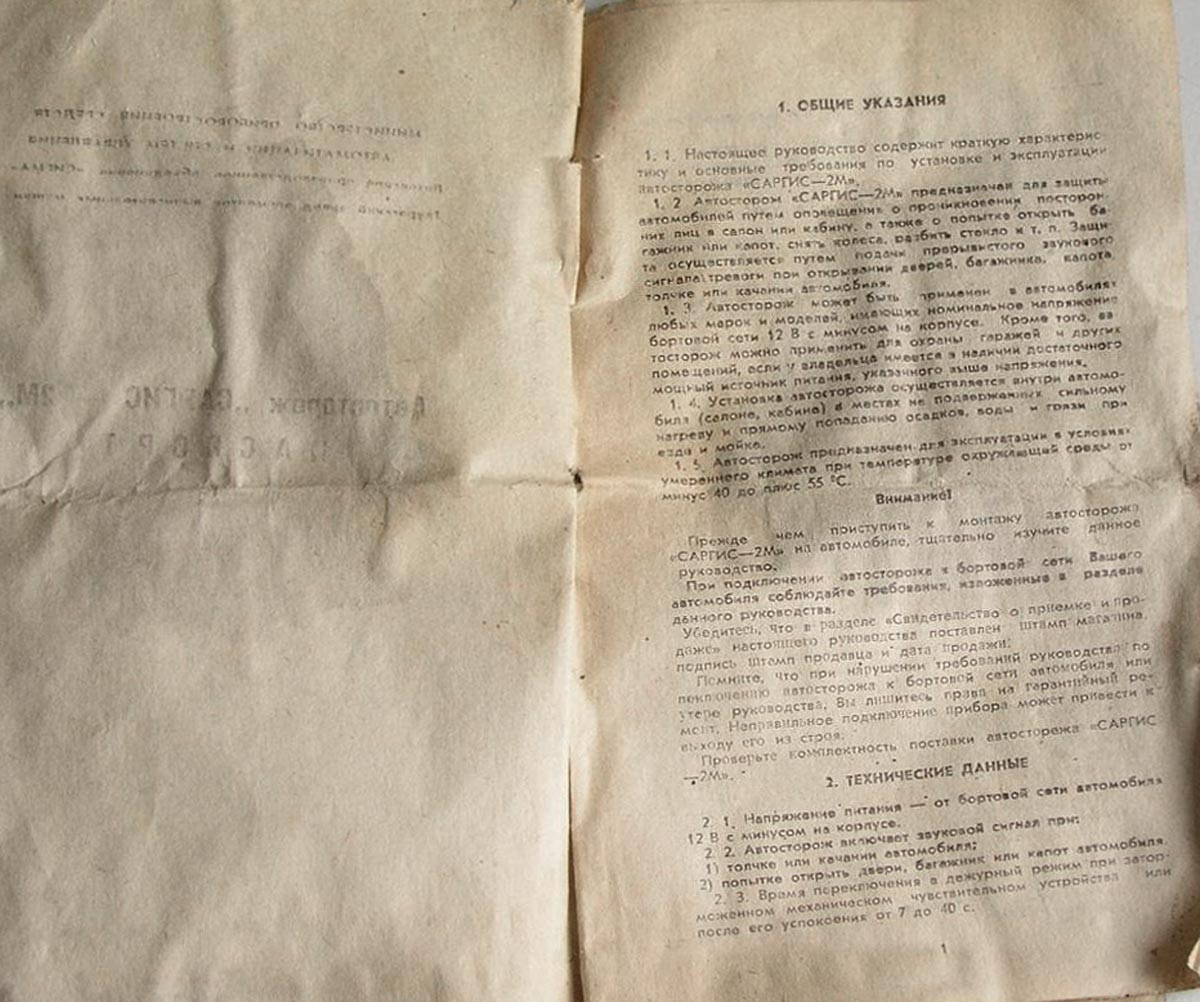 1. ОБЩИЕ УКАЗАНИЯ
1. 1. Настоящее руководство содержит краткую характерис-
тику и основные требования по установке и эксплуатации
автосторожа «САРГИС—2М».
1. 2 Автостором «САРГИС—2М» предназначен для защиты
автомобилей путем оповещения о проникновении посторон-
них лиц в салон или кабину, а также о попытке открыть ба-
гажник или капот, снять колеса, разбить стекло и т. п. Защи-
та осуществляется путем подачи прерывистого звукового
сигнала тревоги при открывании дверей, багажника, капота,
толчке или качании автомобиля.
1. 3. Автосторож может быть применен в автомобилях
любых марок и моделей, имеющих номинальное напряжение
бортовой сети 12 В с минусом на корпусе. Кроме того, ав-
тосторож можно применить для охраны гаражей и других
помещений, если у владельца имеется в наличии достаточного
мощный источник питания, указанного выше напряжения.
1. 4. Установка автосторожа осуществляется внутри автомо-
биля (салоне, кабине) в местах не подверженных сильному
нагреву и прямому попаданию осадков, воды и грязи при
езде и мойке.
1. 5. Автосторож предназначен для эксплуатации в условиях
умеренного климата при температуре окружающей среды от
минус 40 до плюс 55 °С.
Внимание!
Прежде чем приступить к монтажу автосторожа
«САРГИС—2М» на автомобиле, тщательно изучите данное
руководство.
При подключении автосторожа к бортовой сети Вашего
автомобиля соблюдайте требования, изложенные в разделе
данного руководства.
Убедитесь, что в разделе «Свидетельство о приемке и про-
даже» настоящего руководства поставлен штамп магазина,
подпись штамп продавца и дата продажи.
Помните, что при нарушении требований руководства по
поключению автосторожа к бортовой сети автомобиля или
утере руководства, Вы лишитесь права на гарантийный ре-
монт. Направильное подключение прибора может привести к
выходу его из строя.
Проверьте комплектность поставки автосторежа «САРГИС
—2М».
2. ТЕХНИЧЕСКИЕ ДАННЫЕ
2. 1. Напряжение питания — от бортовой сети автомобиля
12 В с минусом на корпусе.
2. 2. Автосторож включает звуковой сигнал при:
1) толчке или качании автомобиля;
2) попытке открыть двери, багажник или капот автомобиля.
2. 3. Время переключения в дежурный режим при затор-
моженном механическом чувствительном устройства или
после его успокоения от 7 до 40 с.
1